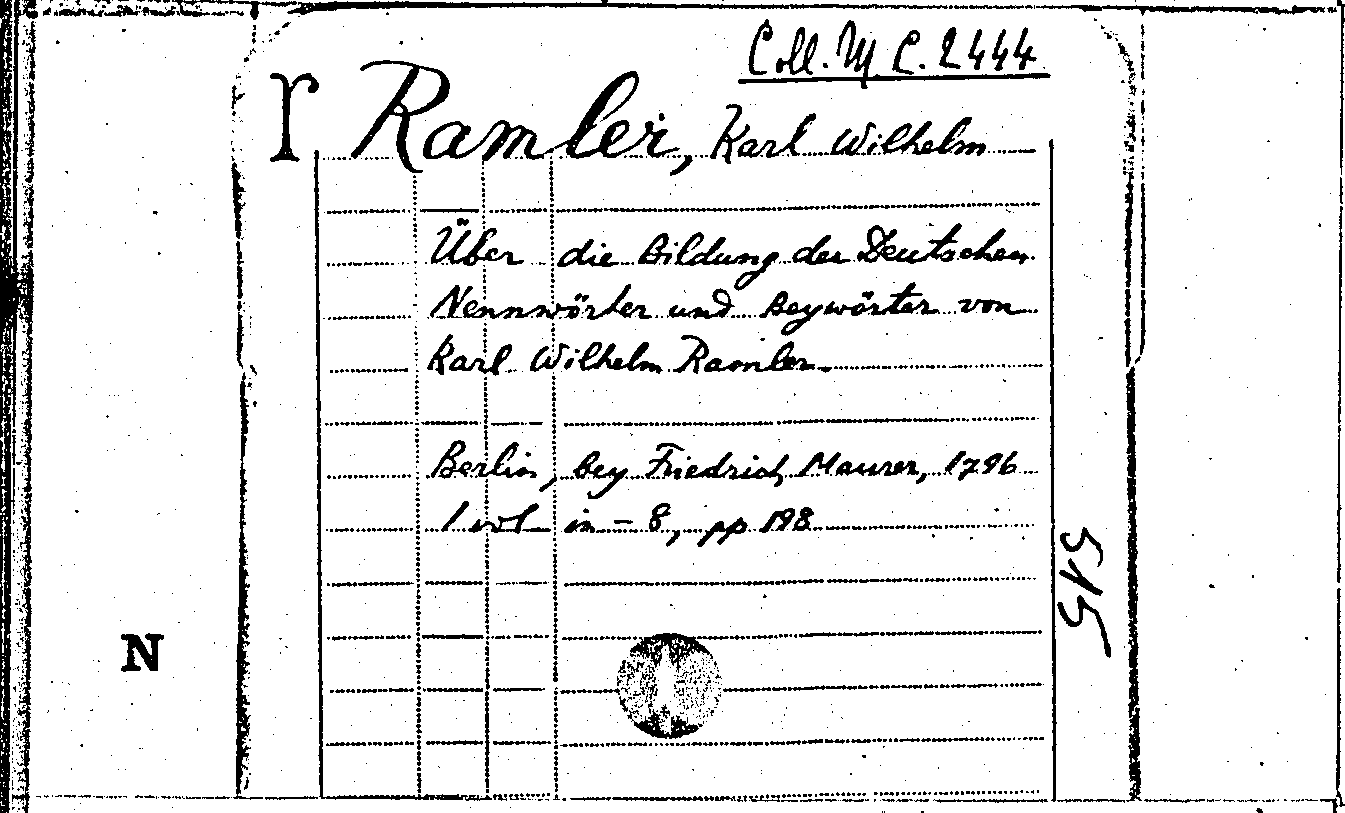 Coll. M C. 2444
r Ramler, Karl Wilhelm
Über die Bildung der Deutschen
Nennwörter und Beywörter von
Karl Wilhelm Ramler.
Berlin, bey Friedrich Maurer, 1796
1 vol in-8, pp 198
515
N